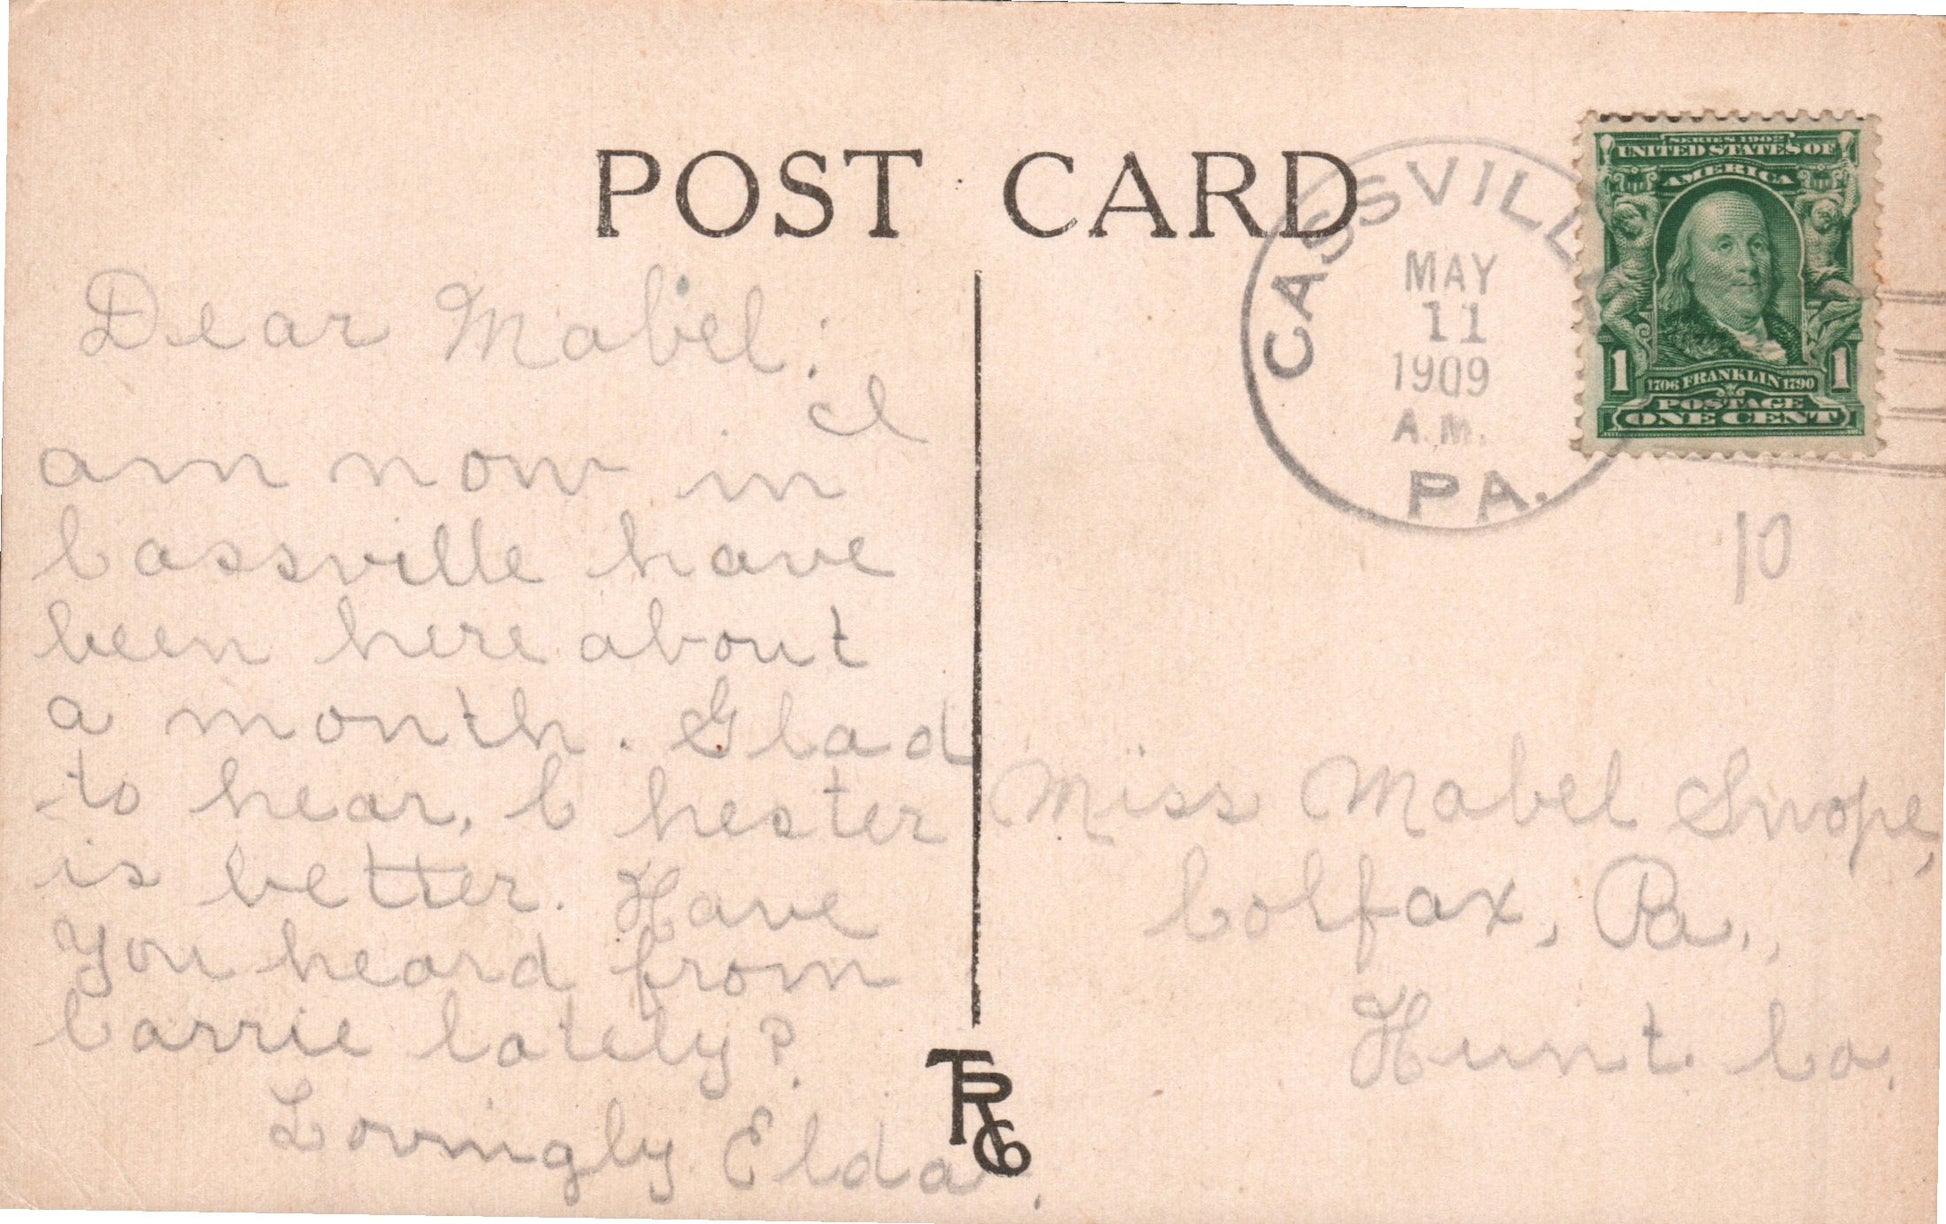 POST CARD
CASSVILLE
MAY
11
1909
A.M.
PA.
SERIES 1902
UNITED STATES OF
AMERICA
1 1706 FRANKLIN 1790 1
POSTAGE
ONE CENT
10
Dear Mabel:
I
am now in
Cassville have
been here about
a month. Glad
to hear, Chester
is better. Have
you heard from
Carrie lately?
Lovingly Elda.
Miss Mabel Swope,
Colfax, Pa.,
Hunt. Co.